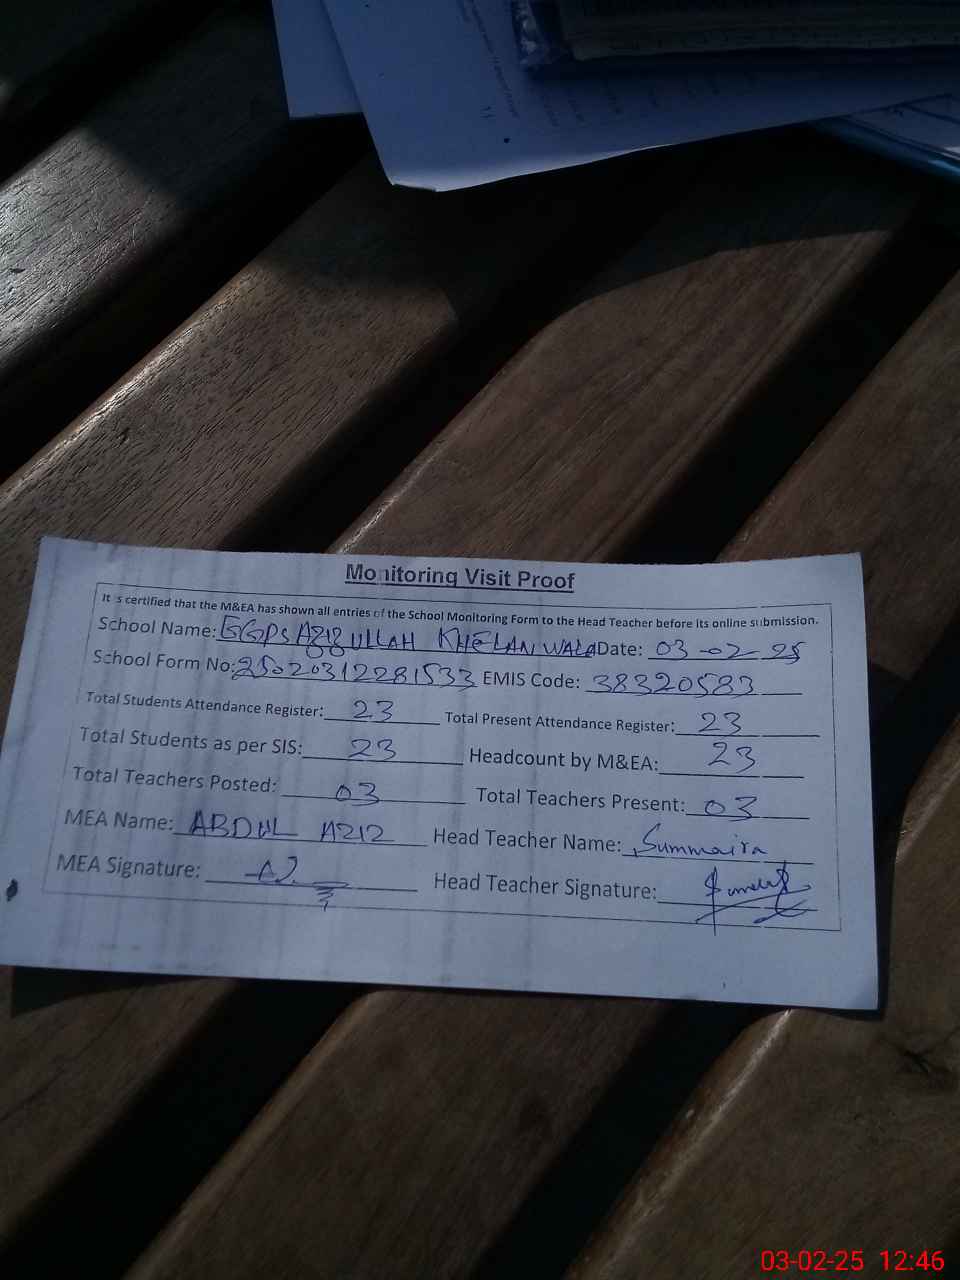 Monitoring Visit Proof
It is certified that the M&EA has shown all entries of the School Monitoring Form to the Head Teacher before its online submission.
School Name: GGPS AZIZ ULLAH KHELAN WALA Date: 03-02-25
School Form No: 25020312281533 EMIS Code: 38320583
Total Students Attendance Register: 23 Total Present Attendance Register: 23
Total Students as per SIS: 23 Headcount by M&EA: 23
Total Teachers Posted: 03 Total Teachers Present: 03
MEA Name: ABDUL AZIZ Head Teacher Name: Summaira
MEA Signature: Head Teacher Signature:
03-02-25 12:46